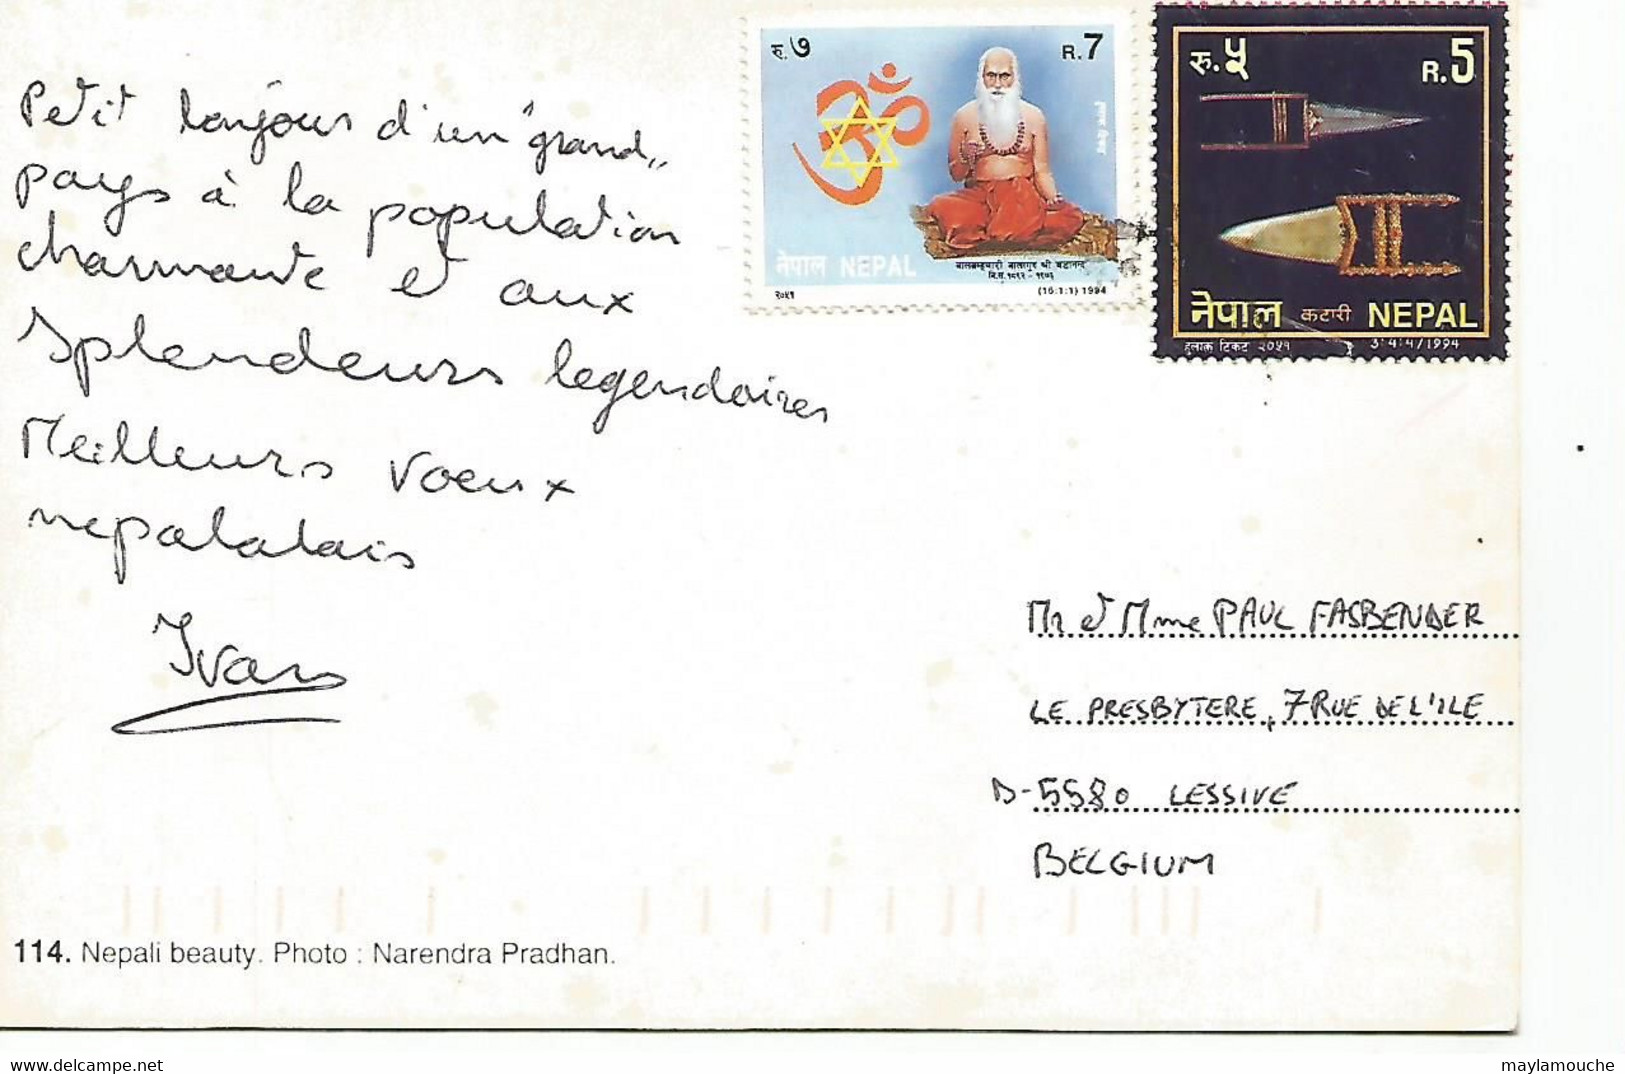 Petit bonjour d'un "grand"
pays à la population
charmante et aux
splendeurs legendaires
Meilleurs voeux
nepalalais
Ivan
रु. ७
R.7
नेपाल NEPAL
२०५१
(16:1:1) 1994
रु. ५
R.5
नेपाल कटारी NEPAL
हुलाक टिकट २०५१
3:4:4/1994
Mr et Mme PAUL FASBENDER
LE PRESBYTERE, 7 RUE DE L'ILE
B-5580 LESSIVE
BELGIUM
114. Nepali beauty. Photo : Narendra Pradhan.
www.delcampe.net
maylamouche